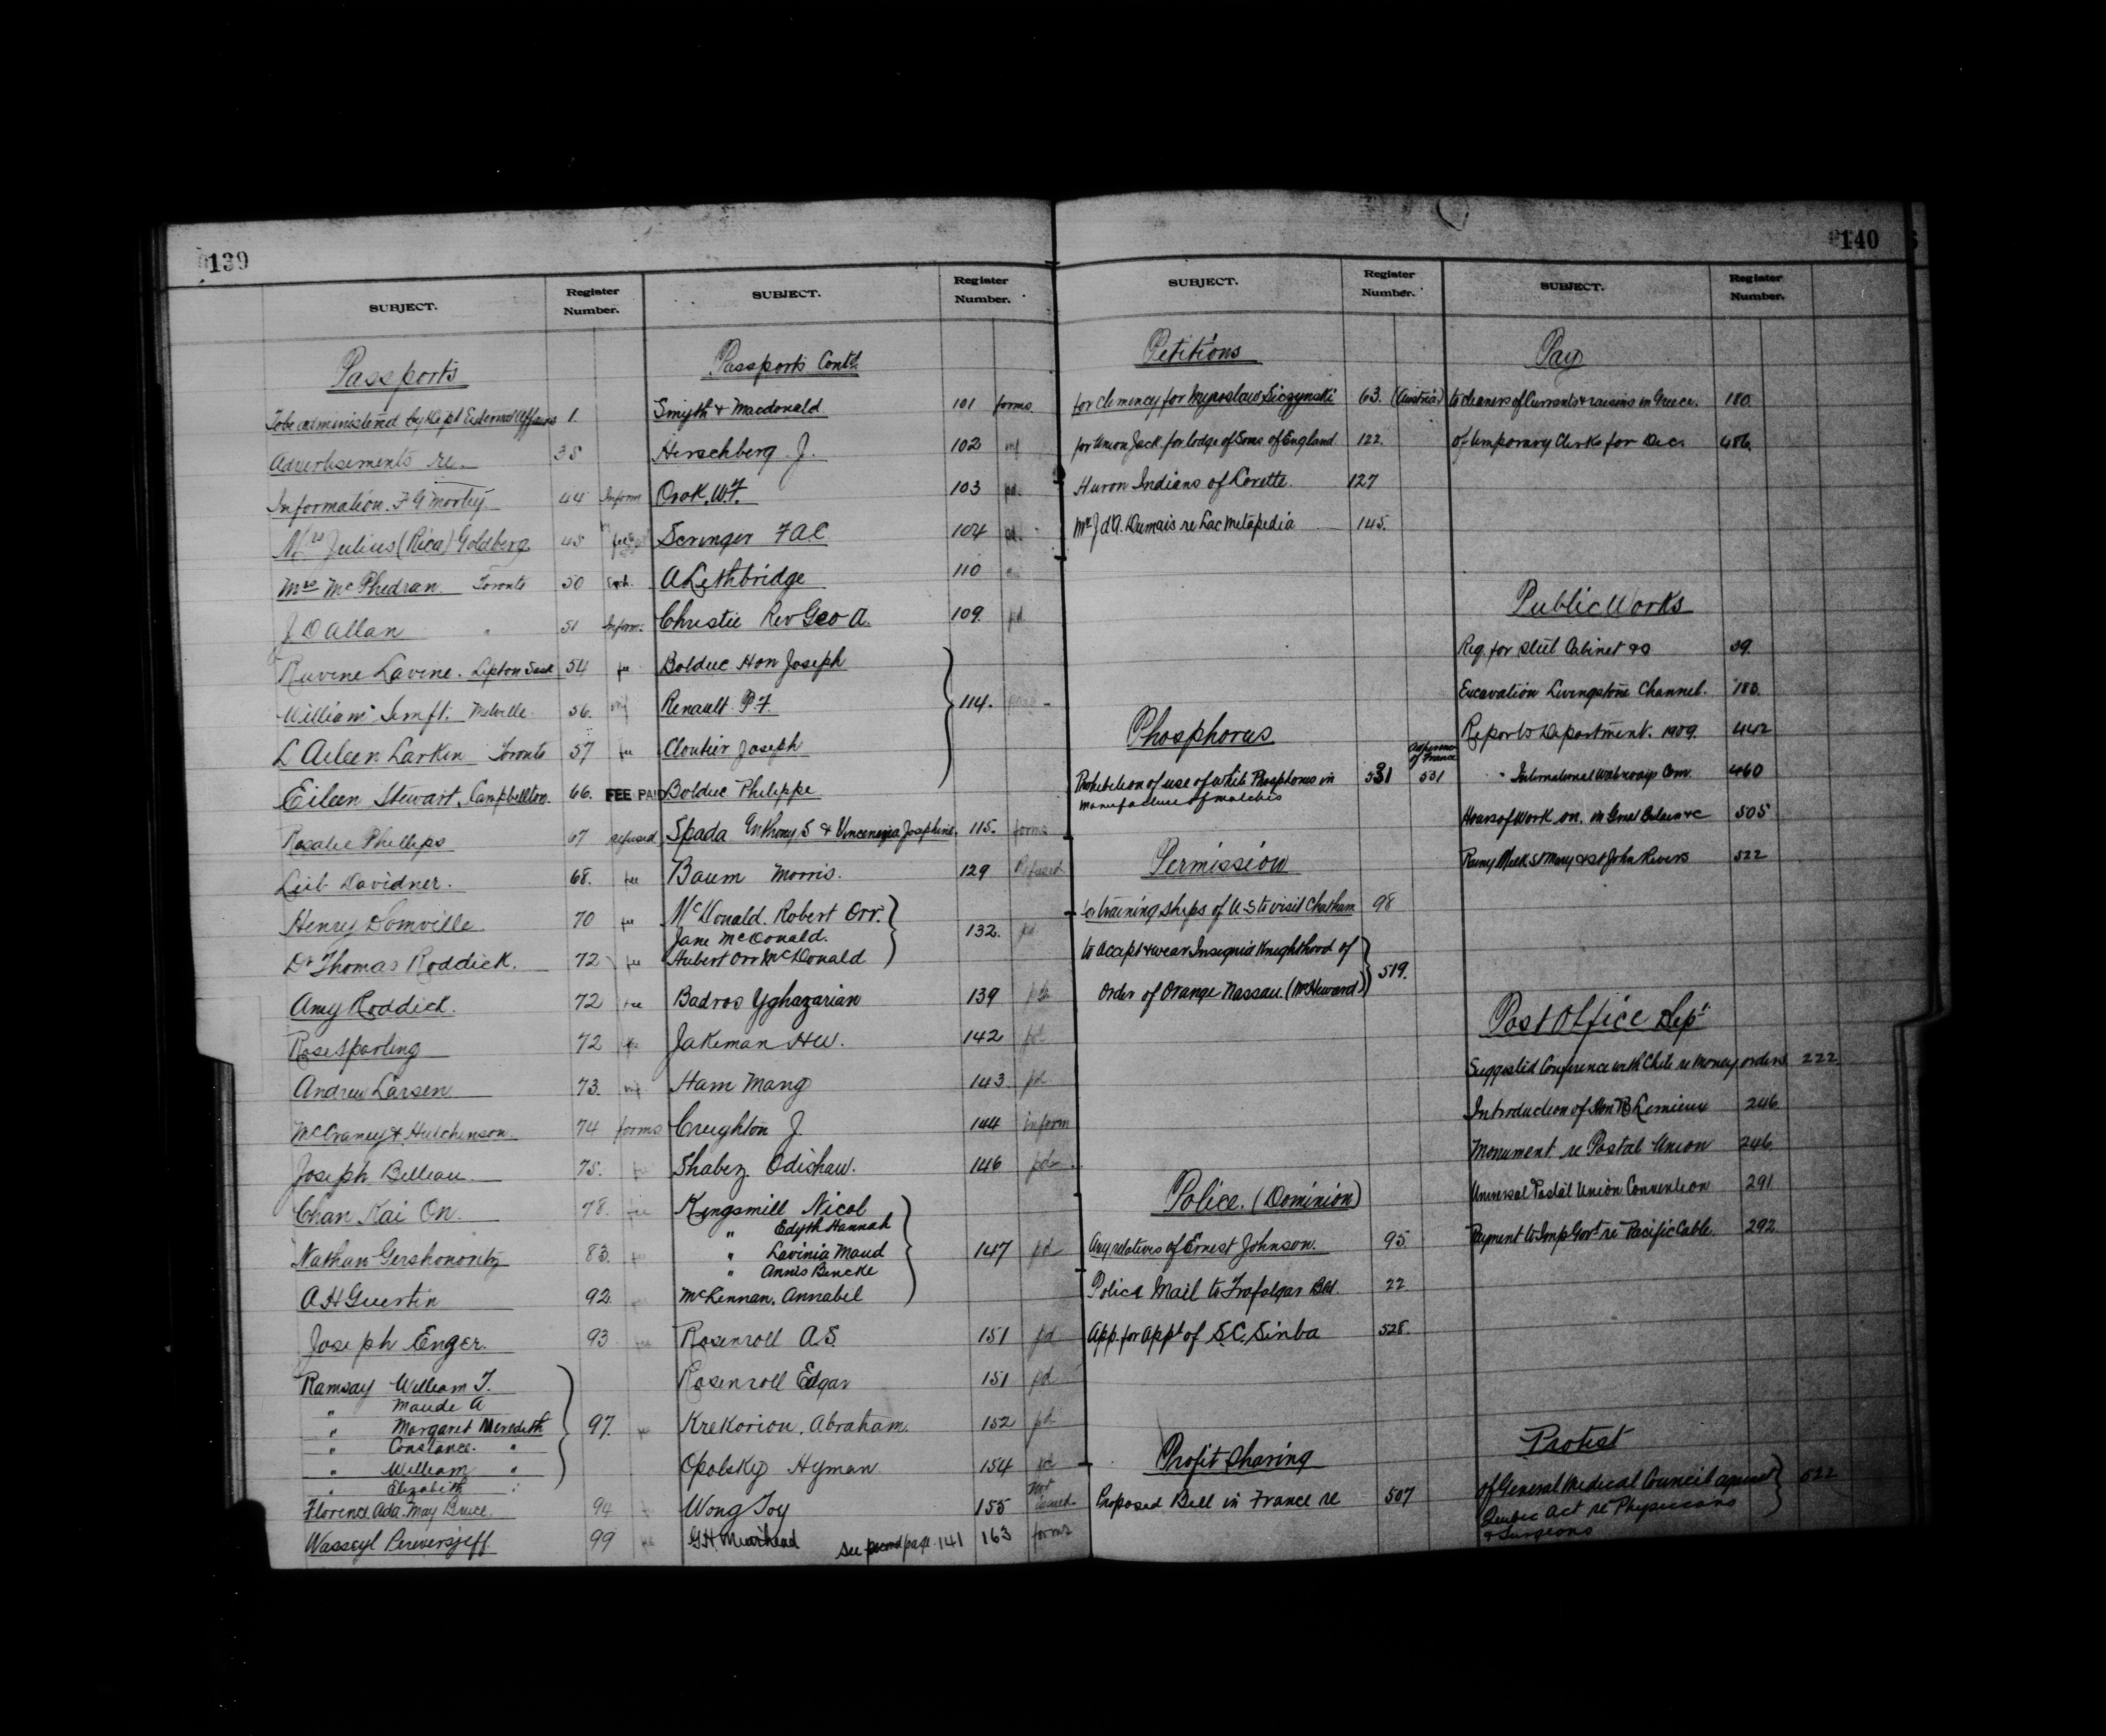 139
SUBJECT.
Register Number.
Passports
To be administered by Dept External Affairs 1.
Advertisements re. 38
Information. F G Morley 44 Inform
Mrs Julius (Rica) Goldberg 45 fee
Mrs McPhedran Toronto 50
J D Allan " 51 Inform.
Ruvine Lavine. Lipton Sask 54 fee
William Semft. Melville 56.
L Aileen Larkin Toronto 57 fee
Eileen Stewart. Campbellton. 66. FEE PAID
Rosalie Phillips 67 refused
Leib Davidner. 68. fee
Henry Domville 70 fee
Dr Thomas Roddick. 72 fee
Amy Roddick. 72 fee
Rose Sparling 72 fee
Andrew Larsen 73.
McCraney & Hutchinson 74 forms
Joseph Belleau 75.
Chan Kai On. 78. fee
Nathan Gershonovitz 83.
A H Guertin 92
Joseph Enger. 93
Ramsay William T.
" Maude A
" Margaret Meredith 97.
" Constance. "
" William "
" Elizabeth "
Florence Ada May Bruce. 94
Wasseyl Perewersjeff. 99
SUBJECT.
Register Number.
Passports Contd
Smyth & Macdonald 101 forms
Herschberg. J. 102
Orok. W.F. 103 pd.
Scringer F A C 104 pd.
A Lethbridge 110
Christie Rev Geo A. 109. pd
Bolduc Hon Joseph
Renault P. F. 114.
Cloutier Joseph
Bolduc Philippe
Spada Anthony S & Vincenezia Josephine. 115. forms
Baum Morris. 129 Refused
McDonald. Robert Orr.
Jane McDonald. 132. pd
Hubert Orr McDonald
Badros Yghazarian 139
Jakeman H W. 142 pd
Ham Mang 143 pd
Creighton J. 144 inform
Shabez Odishaw. 146 pd
Kingsmill Nicol
" Edyth Hannah
" Lavinia Maud 147 pd
" Annis Bencke
McLennan, Annabel
Rosenroll A.S. 151 pd
Rosenroll Edgar 151 pd
Krekorion, Abraham. 152 pd
Opolsky Hyman 154 pd
Wong Toy 155 not issued
G.H. Muirhead see second page 141 163 forms
SUBJECT.
Register Number.
Petitions
for clemency for Myroslaw Siczynski 63. (Austria)
for Union Jack for lodge of Sons of England 122.
Huron Indians of Lorette. 127
Mr J d'A. Dumais re Lac Metapedia 145.
Phosphorus
Prohibition of use of white Phosphorus in 531 531
manufacture of matches
Permission
for training ships of U.S to visit Chatham 98
to accept & wear Insignia Knighthood of
Order of Orange Nassau (Mr Heward) 519.
Police. (Dominion)
Any relatives of Ernest Johnson. 95.
Police Mail to Trafalgar Bld. 22
App. for Appt of S.C. Sinba 528.
Profit Sharing
Proposed Bill in France re 507
140
SUBJECT.
Register Number.
Pay
to cleaners of Currants & raisins in Greece. 180.
of temporary Clerks for Dec. 486.
Public Works
Req. for Steel Cabinet &c 39.
Excavation Livingstone Channel. 183.
Reports Department. 1909. 442
" International Waterways Com. 460
Hours of Work on. in Great Britain &c 505
Rainy St Mary & St John Rivers 522
Post Office Dept
Suggested Conference with Chile re Money orders 222
Introduction of Hon R Lemieux 246
Monument re Postal Union 246
Universal Postal Union Convention 291
Payment to Imp Govt re Pacific Cable. 292
Protest
of General Medical Council against 522
Quebec Act re Physicians
& Surgeons